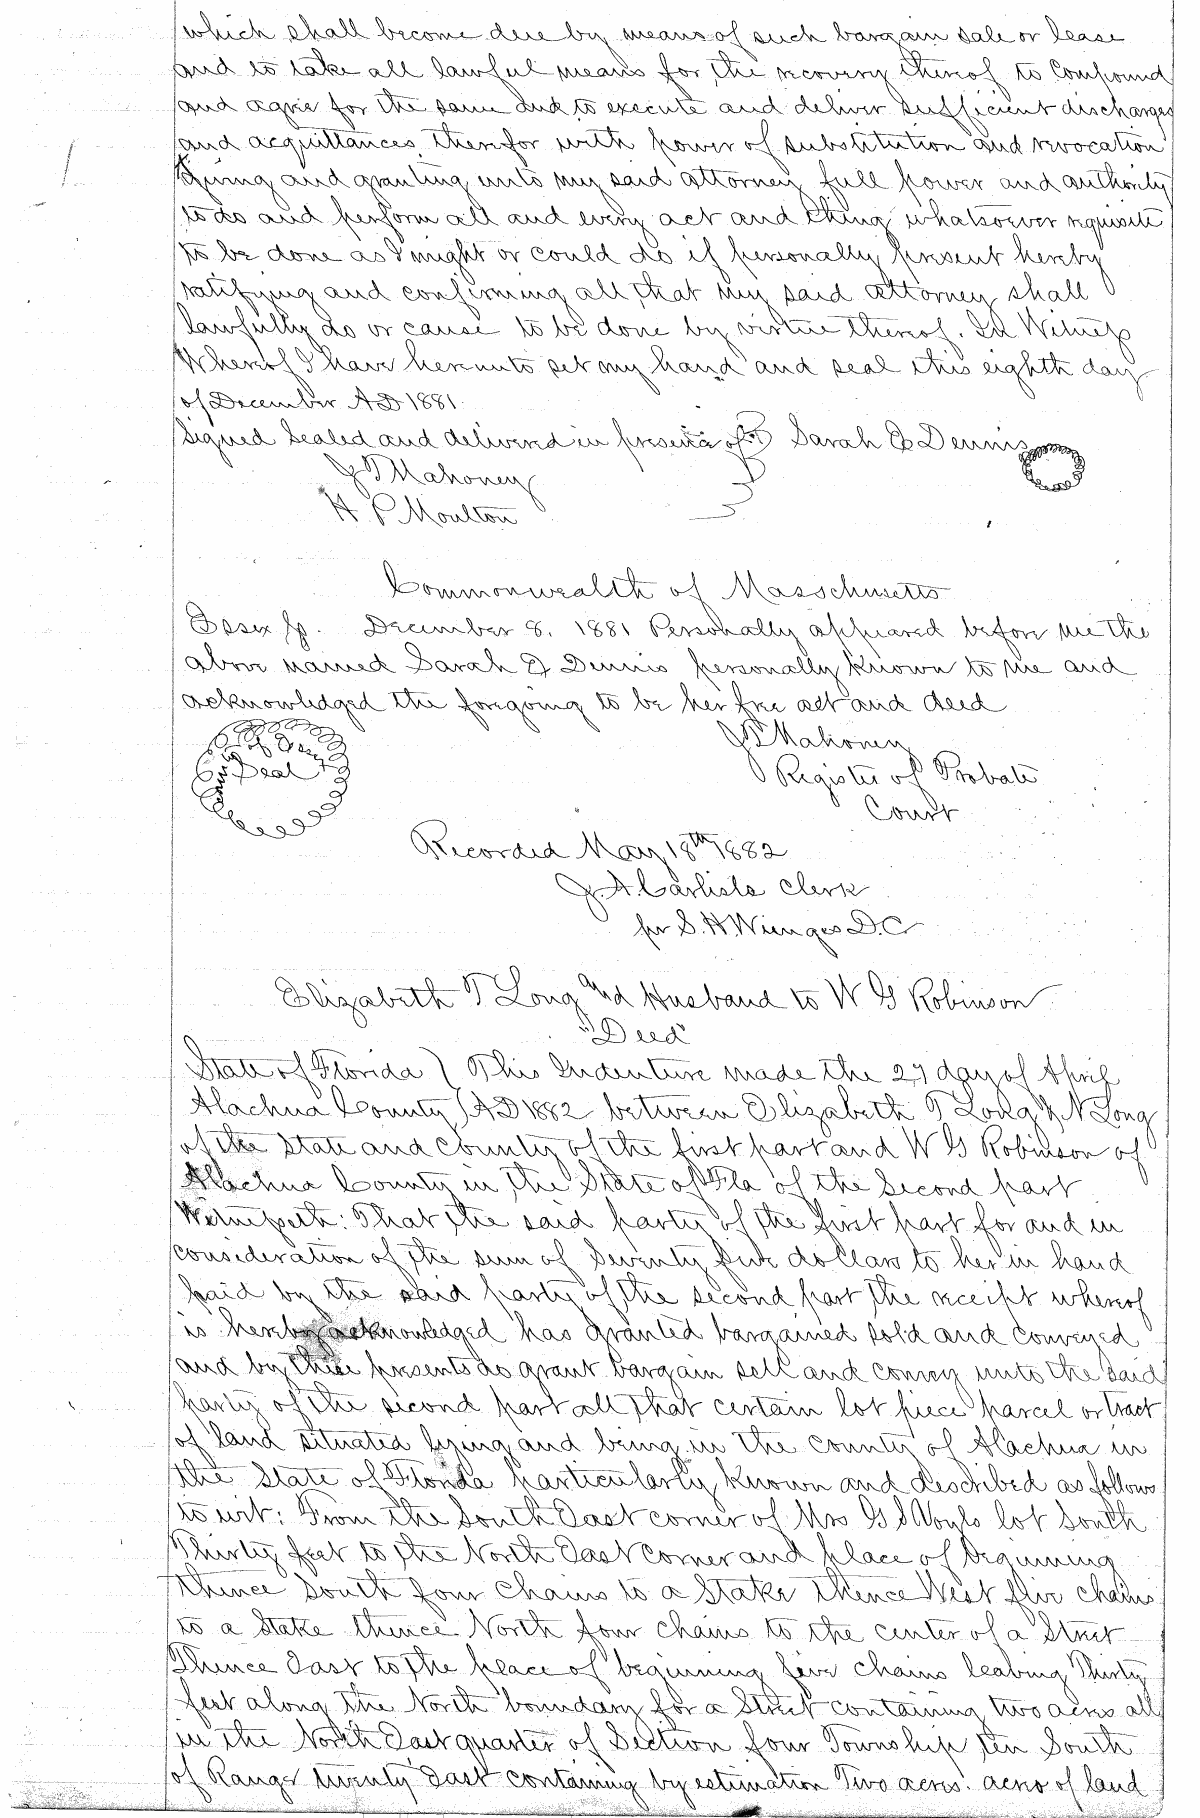 which shall become due by means of such bargain sale or lease
and to take all lawful means for the recovery thereof to compound
and agree for the same and to execute and deliver sufficient discharges
and acquittances therefor with power of substitution and revocation
Giving and granting unto my said attorney full power and authority
to do and perform all and every act and thing whatsoever requisite
to be done as I might or could do if personally present hereby
ratifying and confirming all that my said attorney shall
lawfully do or cause to be done by virtue thereof. In Witness
Whereof I have hereunto set my hand and seal this eighth day
of December AD 1881.
Signed Sealed and delivered in presence of Sarah E Dennis
J T Mahoney
H P Moulton
Commonwealth of Masschusetts
Essex ss. December 8. 1881 Personally appeared before me the
above named Sarah E Dennis personally known to me and
acknowledged the foregoing to be her free act and deed
Seal
J T Mahoney
Register of Probate
Court
Recorded May 18th 1882
J. A. Carlisle Clerk
pr S. H. Wienges D. C
Elizabeth T Long and Husband to W G Robinson
"Deed"
State of Florida ) This Indenture made the 27 day of April
Alachua County ) AD 1882 between Elizabeth T Long & N Long
of the State and County of the first part and W G Robinson of
Alachua County in the State of Fla of the Second part
Witnesseth: That the said party of the first part for and in
consideration of the sum of Seventy five dollars to her in hand
paid by the said party of the second part the receipt whereof
is hereby acknowledged has granted bargained sold and conveyed
and by these presents do grant bargain sell and convey unto the said
party of the second part all that certain lot piece parcel or tract
of land situated lying and being in the County of Alachua in
the State of Florida particularly known and described as follows
to wit: From the South East corner of Mrs G S lot South
Thirty feet to the North East corner and place of beginning
thence South four chains to a Stake thence West five chains
to a Stake thence North four chains to the center of a Street
Thence East to the place of beginning five chains leaving Thirty
feet along the North boundary for a Street containing two acres all
in the North East quarter of Section four Township ten South
of Range twenty East containing by estimation Two acres. acres of land